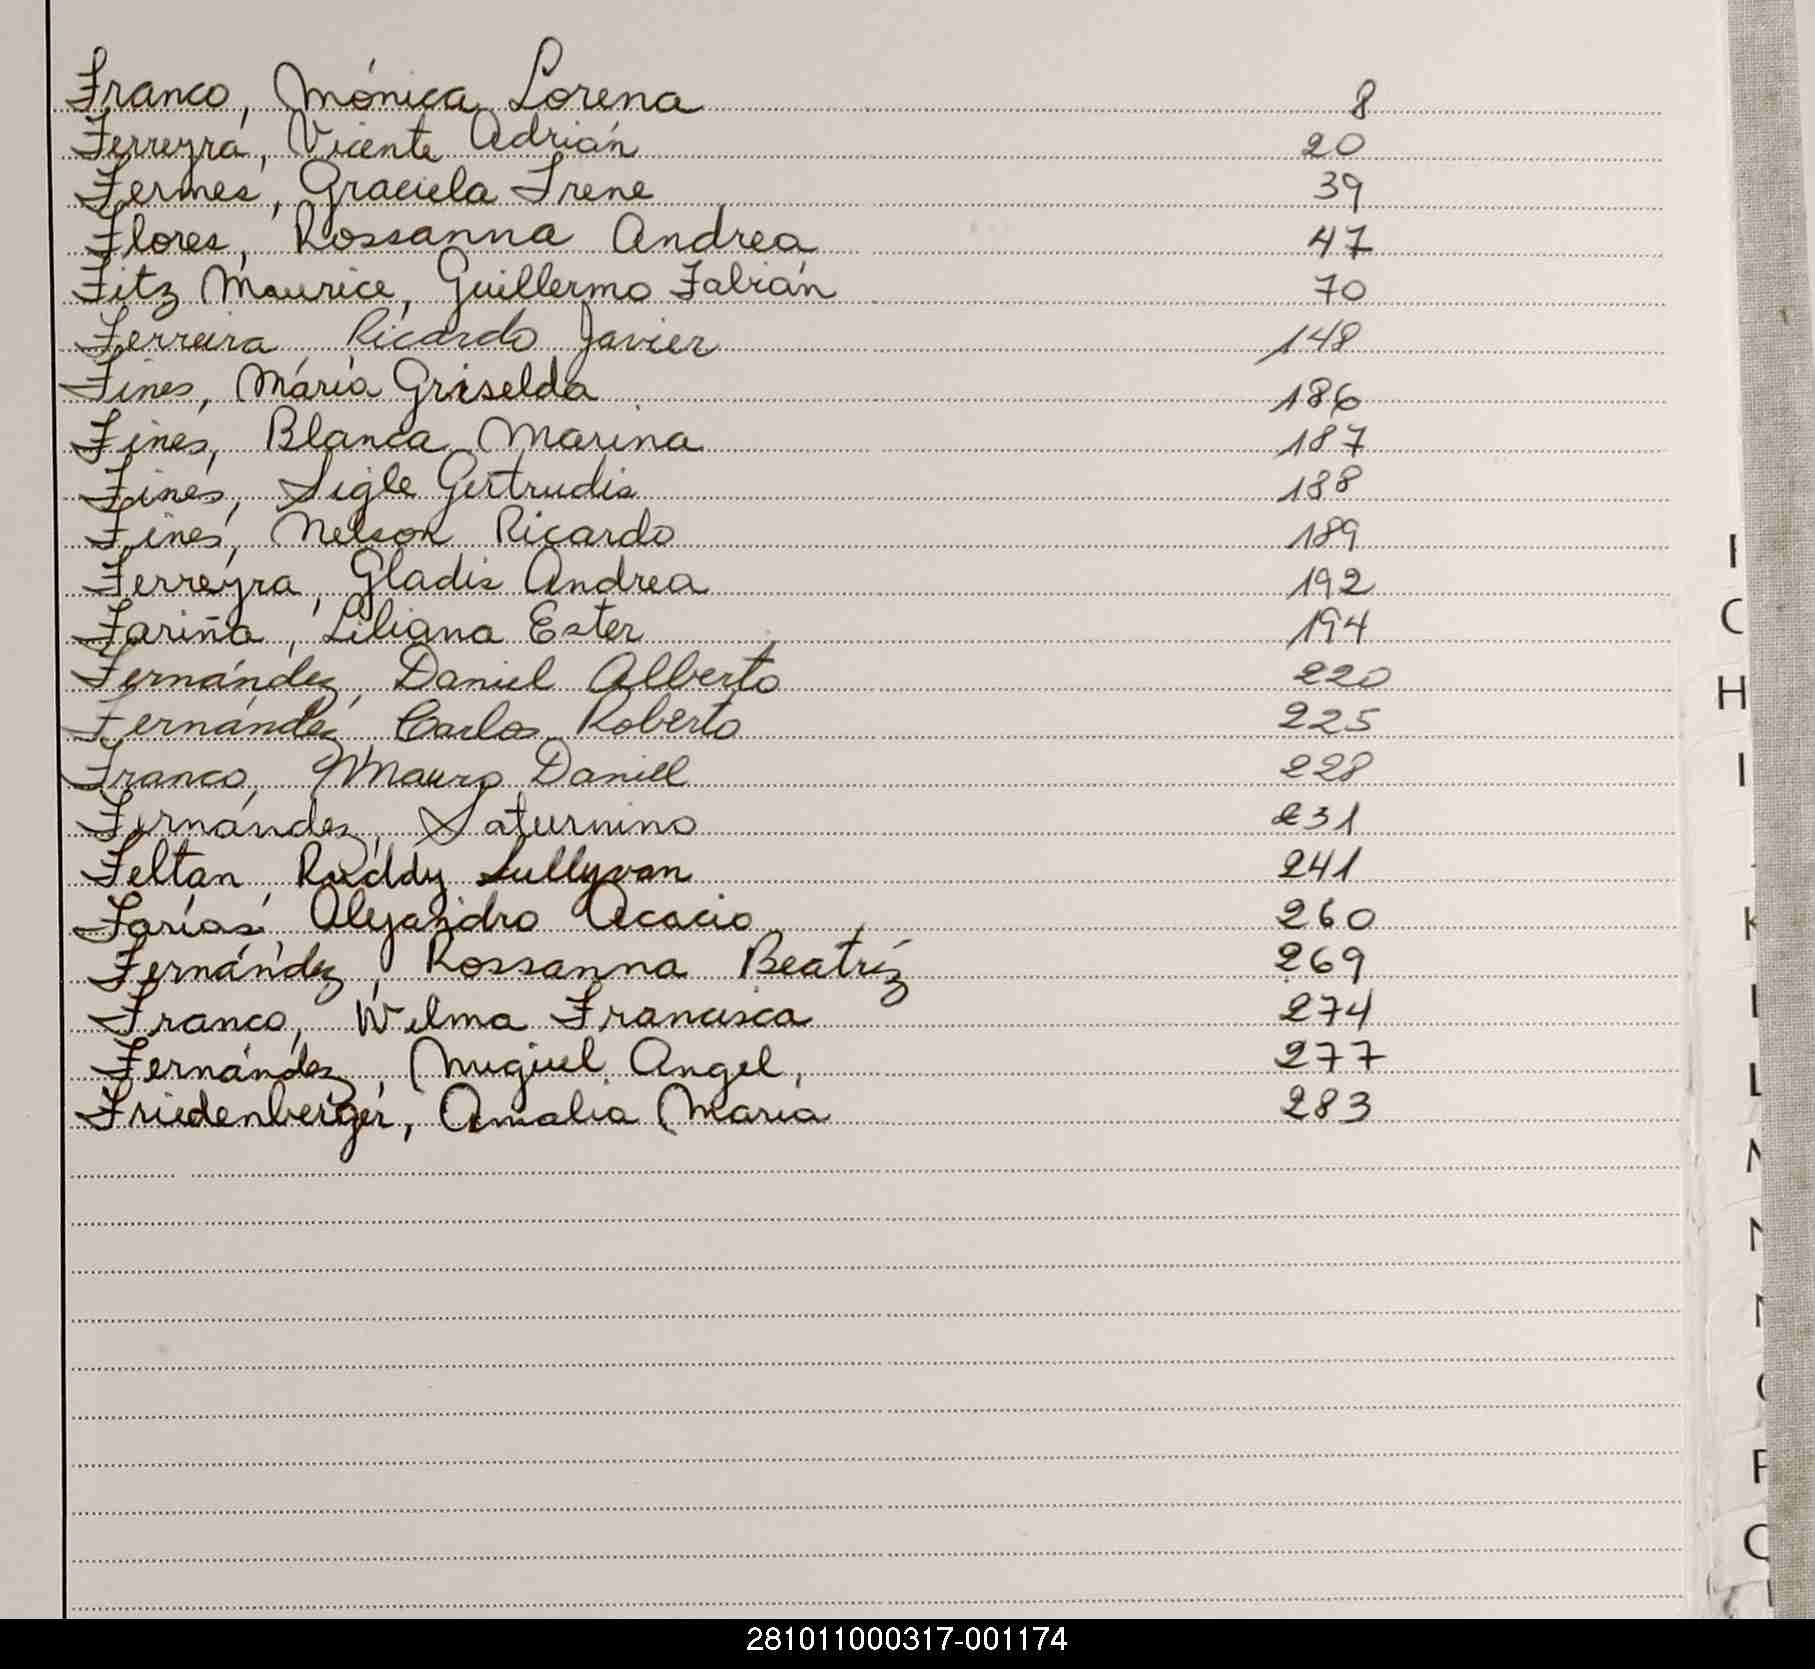 Franco, Mónica Lorena 8
Ferreyra, Vicente Adrián 20
Fermes, Graciela Irene 39
Flores, Rossanna Andrea 47
Fitz Maurice, Guillermo Fabián 70
Ferreira, Ricardo Javier 148
Fines, María Griselda 186
Fines, Blanca Marina 187
Fines, Sigle Gertrudis 188
Fines, Nelson Ricardo 189
Ferreyra, Gladis Andrea 192
Fariña, Liliana Ester 194
Fernández, Daniel Alberto 220
Fernández, Carlos Roberto 225
Franco, Mauro Daniel 228
Fernández, Saturnino 231
Feltan, Ruddy Sullyvan 241
Farías, Alejandro Acacio 260
Fernández, Rossanna Beatríz 269
Franco, Wilma Francisca 274
Fernández, Miguel Angel, 277
Friedenberger, Amalia Maria 283
H
I
281011000317-001174